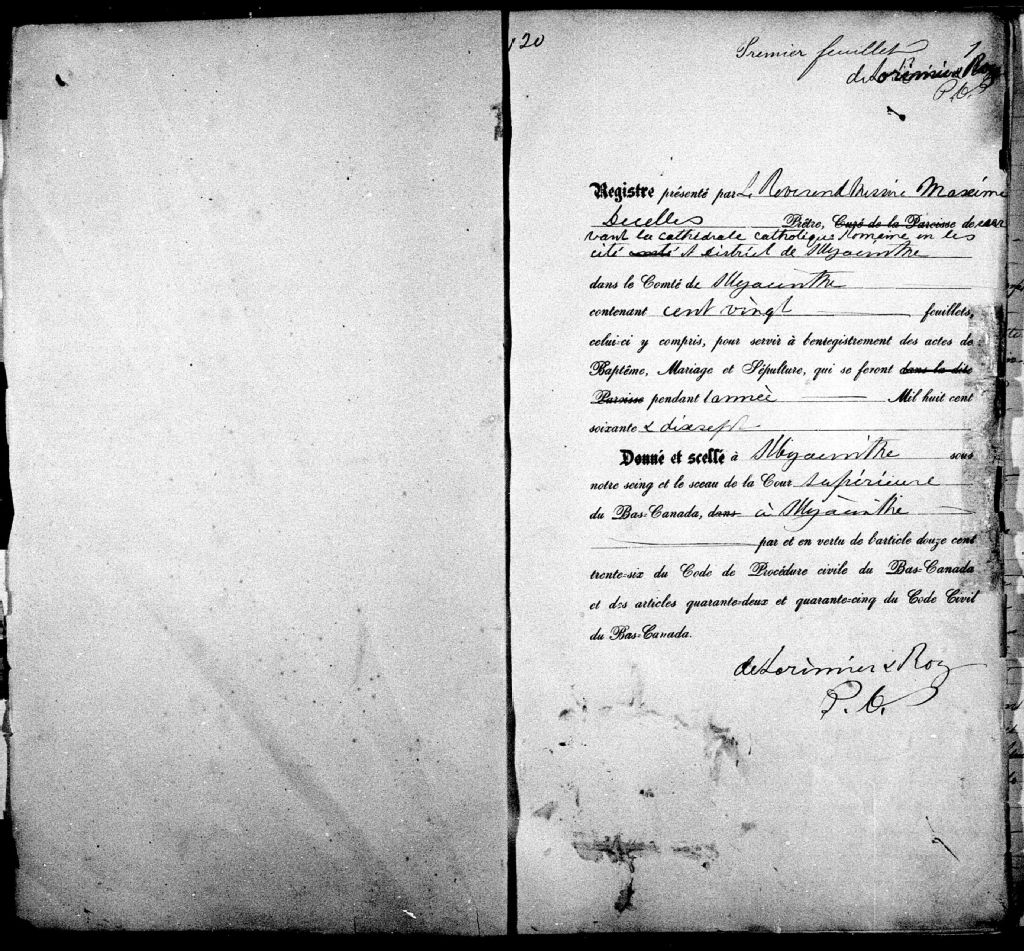 120
Premier feuillet 1
de Lorimier & Roy
P.C.S.
Registre présenté par Le Reverend Messire Maxime
Decelles Prêtre, Curé de la Paroisse de desser
vant la cathédrale catholique Romaine en les
cité comté et district de St Hyacinthe
dans le Comté de St Hyacinthe
contenant cent vingt feuillets,
celui-ci y compris, pour servir à l'enregistrement des actes de
Baptême, Mariage et Sépulture, qui se feront dans la dite
Paroisse pendant l'année Mil huit cent
soixante & dixsept
Donné et scellé à St Hyacinthe sous
notre seing et le sceau de la Cour supérieure
du Bas-Canada, dans à St Hyacinthe
par et en vertu de l'article douze cent
trente-six du Code de Procédure civile du Bas-Canada
et des articles quarante-deux et quarante-cinq du Code Civil
du Bas-Canada.
de Lorimier & Roy
P.C.S.